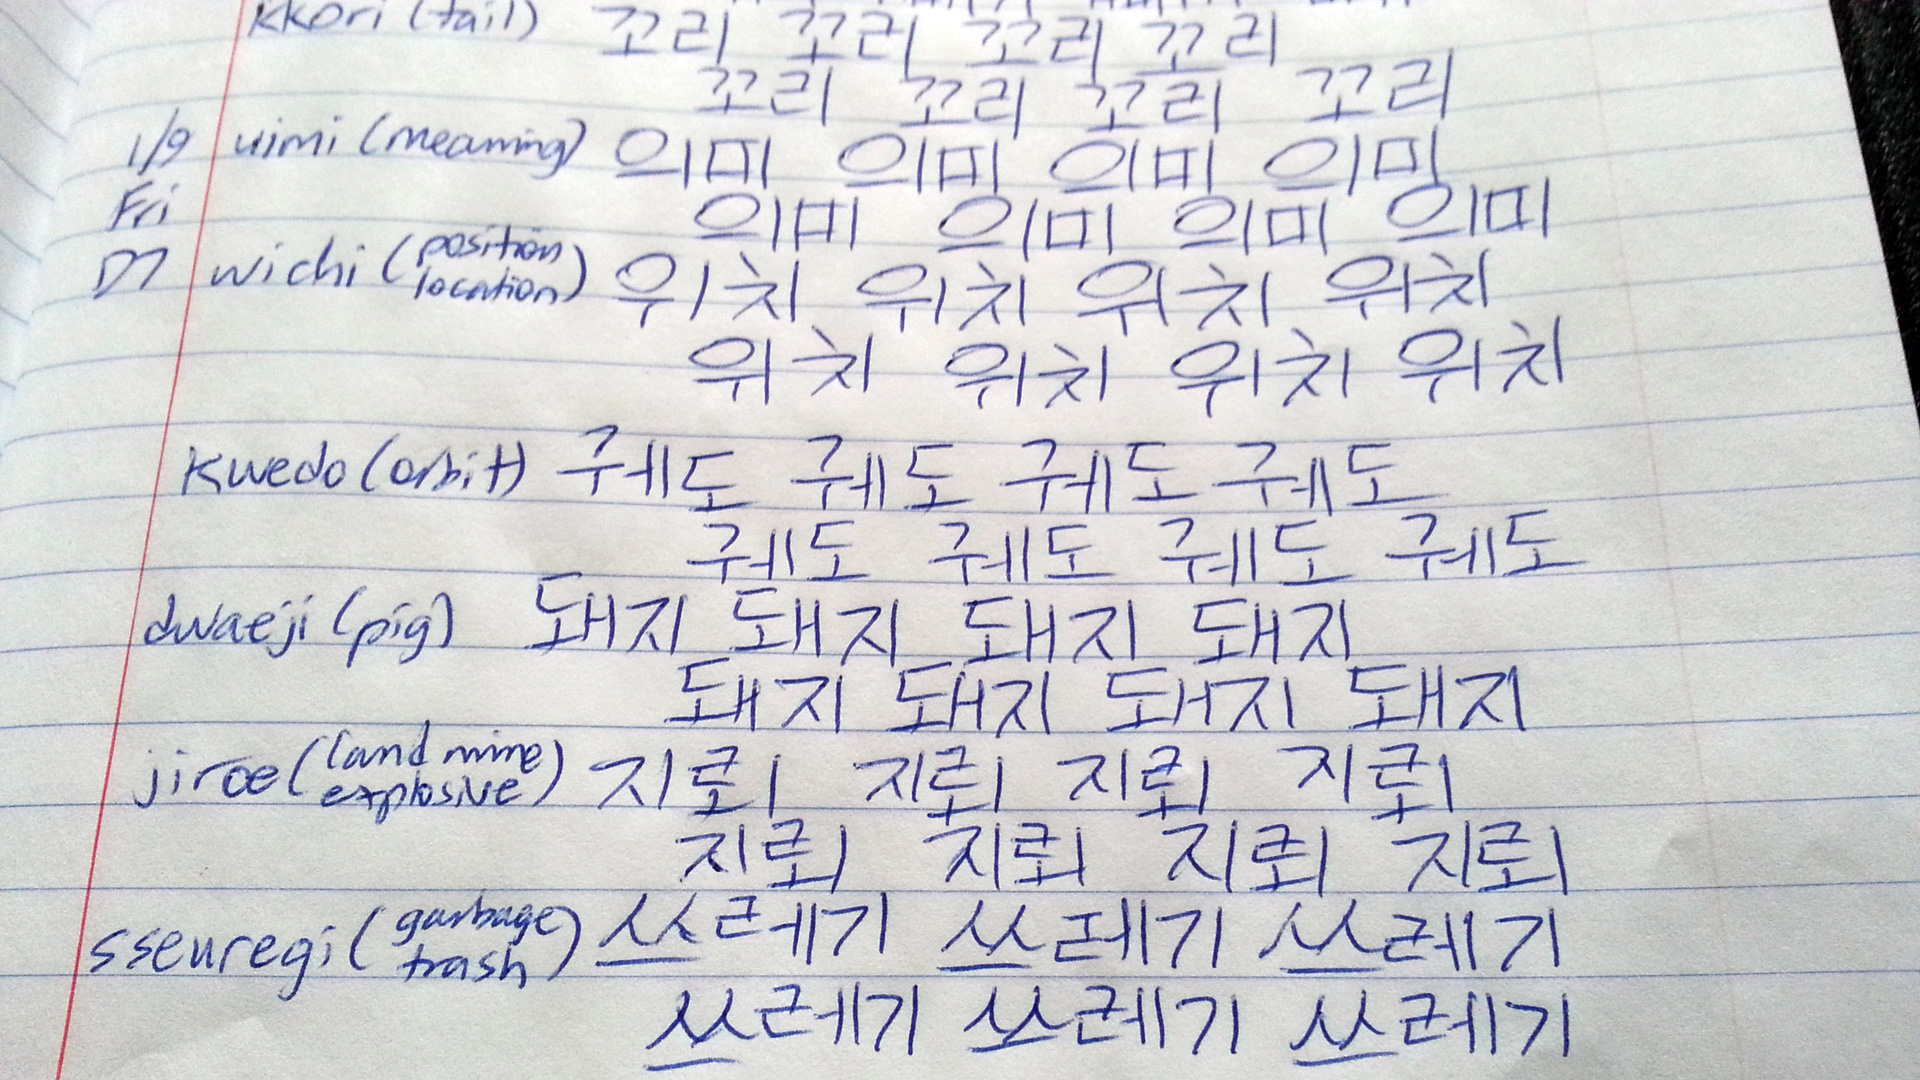 kkori (tail) 꼬리 꼬리 꼬리 꼬리
꼬리 꼬리 꼬리 꼬리
1/9 uimi (meaning) 의미 의미 의미 의미
Fri 의미 의미 의미 의미
D7 wichi (position location) 위치 위치 위치 위치
위치 위치 위치 위치
kwedo (orbit) 궤도 궤도 궤도 궤도
궤도 궤도 궤도 궤도
dwaeji (pig) 돼지 돼지 돼지 돼지
돼지 돼지 돼지 돼지
jiroe (land mine explosive) 지뢰 지뢰 지뢰 지뢰
지뢰 지뢰 지뢰 지뢰
sseuregi (garbage trash) 쓰레기 쓰레기 쓰레기
쓰레기 쓰레기 쓰레기